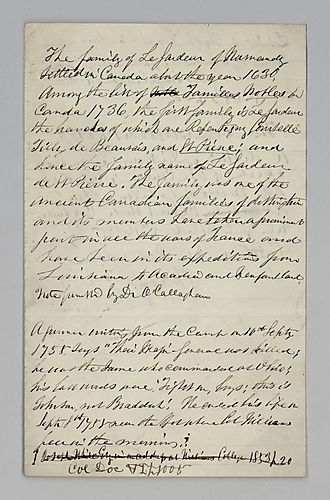 The family of Le Gardeur of Normandy
settled in Canada about the year 1636,
Among the list of Familles Nobles in
Canada 1736, the first family is Le Gardeur
the branches of which are Repentigny, Courtille
Tilly, de Beauvais, and St Pierre; and
hence the family name of Le Gardeur
de St Pierre. The family was one of the
ancient Canadian families of distinction
and its members have taken a prominent
part in all the wars of France and
have been in its expeditions from
Louisiana to Acadia and Newfoundland.
Note furnished by Dr O'Callaghan

A ... writing from the Camp on 10th Septr
1755 says "Their Maj General was killed;
he was the same who commanded at Ohio;
his last words were 'Fight on, boys; this is
Johnson, not Braddock'. He ended his life on
Sept 8th 1755 near the ... Col Williams
fell in the morning."
Joseph White Esq in address at Williams College 1855 p 20
Col Doc VI p 1005